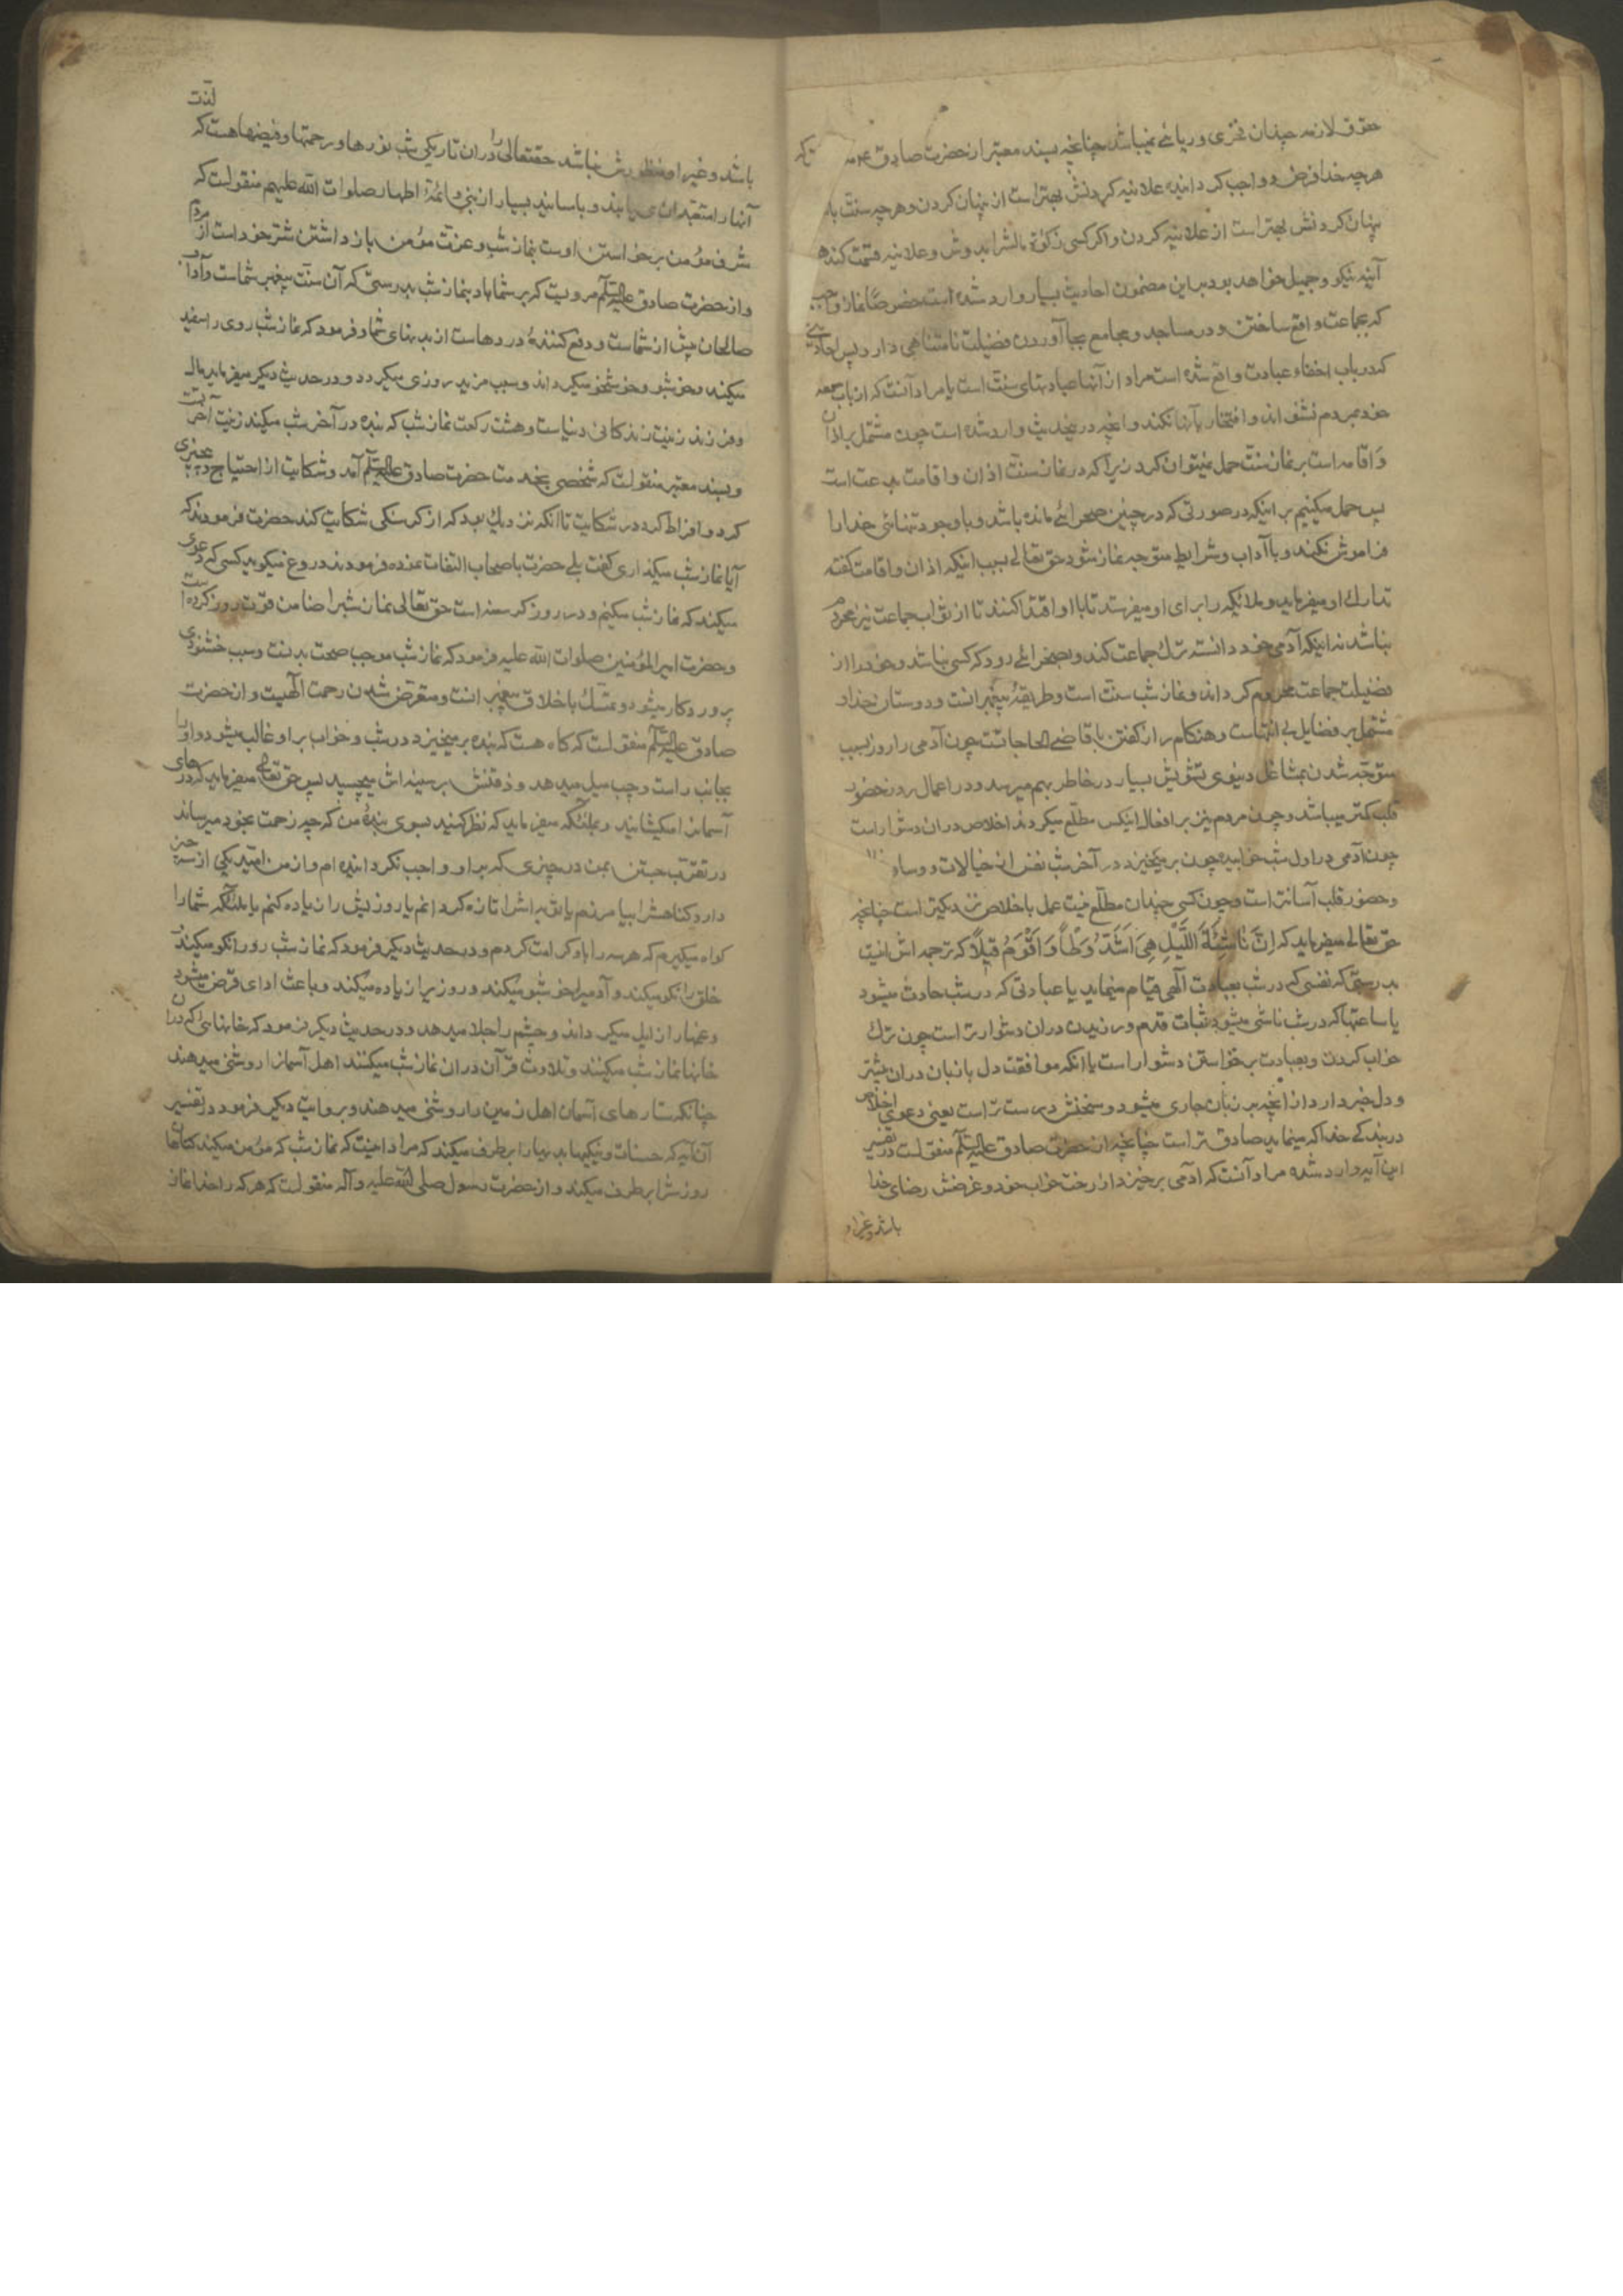 حقوق لازمه چندان فخری و ریائی نمیباشد چنانچه بسند معتبر از حضرت صادق
هرچه خدا فرض و واجب کردانیده علانیه کردنش بهتر است از پنهان کردن و هرچه سنت
پنهان کردنش بهتر است از علانیه کردن و اکر کسی زکوة مالشرا بدوش و علانیه قسمت کند هر
آینه نیکو و جمیل خواهد بود بر این مضمون احادیث بسیار وارد شده است خصوصا نماز واجب
که بجماعت واقع ساختن و در مساجد و مجامع بجا آوردن فضیلت نامتناهی دارد پس احادیثی
که در باب اخفاء عبادت واقع شده است مراد از آنها عبادتهای سنت است یا مراد آنست که از باب
خود بمردم نشنواند و افتخار بآنها نکند و انچه در بخدیث وارد شده است چون مشتمل بر اذان
و اقامه است بر نماز سنت حمل نمیتوان کرد زیرا که در نماز سنت اذان و اقامت بدعت است
پس حمل میکنیم بر اینکه در صورتی که در چنین صحرائی مانده باشد و با وجود تنهائی خدا را
فراموش نکند و با آداب و شرایط متوجه نماز شود حق تعالی بسبب اینکه اذان و اقامت کفته
تدارک او میفرماید و ملائکه را برای او میفرستد تا باو اقتدا کنند تا از ثواب جماعت نیز محروم
نباشد نه اینکه آدمی خود دانسته ترک جماعت کند و بصحرائی رود که کسی نباشد و خود را از
فضیلت جماعت محروم کرداند و نماز شب سنت است و طریقهٔ پیغمبرانست و دوستان خدا و
مشتمل بر فضایل بی انتهاست و هنکام راز کفتن با قاضی الحاجاتست چون آدمی را روز بسبب
متوجه شدن بمشاغل دنیوی تشویش بسیار در خاطر بهم میرسد و در اعمال روز حضور
قلب کمتر میباشد و چون مردم نیز بر افعال اینکس مطلع میکردند اخلاص در ان دشوار است
چون آدمی در اول شب خوابیده چون برمیخیزد در آخر شب نفس از خیالات و وساوس
و حضور قلب آسانتر است و چون کسی چندان مطلع نیست عمل باخلاص نزدیکتر است چنانچه
حق تعالی میفرماید که اِنَّ نَاشِئَةَ اللَّیْلِ هِیَ اَشَدُّ وَطْاً وَ اَقْوَمُ قیلاً که ترجمه اش اینست
بدرستی که نفسی که در شب بعبادت آلهی قیام مینماید یا عبادتی که در شب حادث میشود
یا ساعتها که در شب ناشی میشود ثبات قدم ورزیدن در ان دشوارتر است چون ترک
خواب کردن و بعبادت برخواستن دشوار است یا انکه موافقت دل با زبان در ان بیشتر
و دل خبر دارد از انچه بر زبان جاری میشود و سخنش درست تر است یعنی دعوی اخلاص
در بندکی خدا که مینماید صادق تر است چنانچه از حضرت صادق علیه السلم منقولست در تفسیر
این آیه وارد شده مراد آنست که ادمی برخیزد از رخت خواب خود و غرضش رضای خدا
باشد و غیر او
لذت
باشد و غیر او منظورش نباشد حقتعالی را در ان تاریکی شب نورها و رحمتها و فیضها هست که
آنها را متعبدان می یابند و باسانید بسیار از نبی و ائمهٔ اطهار صلوات الله علیهم منقولست که
شرف مؤمن برخواستن اوست بنماز شب و عزت مؤمن بازداشتن شر خود است از مردم
و از حضرت صادق علیه السلم مرویست که بر شما باد بنماز شب بدرستی که آن سنت پیغمبر شماست و آداب
صالحان پیش از شماست و دفع کنندهٔ دردهاست از بدنهای شما و فرمود که نماز شب روی را سفید
میکند و خوشبو و خوشخو میکرداند و سبب مزید روزی میکردد و در حدیث دیکر میفرماید مال
و فرزند زینت زندکانی دنیاست و هشت رکعت نماز شب که بنده در آخر شب میکند زینت آخرتست
و بسند معتبر منقولست که شخصی بخدمت حضرت صادق علیه السلم آمد و شکایت از احتیاج و چیزی
کرد و افراط کرد در شکایت تا انکه نزدیک بود که از کرسنکی شکایت کند حضرت فرمودند که
آیا نماز شب میکذاری کفت بلی حضرت باصحاب التفات نموده فرمودند دروغ میکوید کسی که دعوی
میکند که نماز شب میکنم و در روز کرسنه است حق تعالی نماز شبرا ضامن قوت روز کرده است
و حضرت امیر المؤمنین صلوات الله علیه فرمود که نماز شب موجب صحت بدنست و سبب خشنودی
پروردکار میشود و تمسک باخلاق پیغمبرانست و متعرض شدن رحمت الهیست و از حضرت
صادق علیه السلم منقولست که کاه هست که بنده برمیخیزد در شب و خواب بر او غالب میشود و او را
بجانب راست و چپ میل میدهد و ذقنش بر سینه اش میچسبد پس حق تعالی میفرماید که درهای
آسمانرا میکشایند و بملئکه میفرماید که نظر کنید بسوی بندهٔ من که چه زحمت بخود میرساند
در تقرب جستن بمن در چیزی که بر او واجب نکردانیده ام و از من امید یکی از سه چیز
دارد کناهش را بیامرزم یا توبه اشرا تازه کردانم یا روزیش را زیاده کنم یا ملئکه شما را
کواه میکیرم که هر سه را باو کرامت کردم و در حدیث دیکر فرمود که نماز شب رو را نکو میکند
خلق را نکو میکند و آدمیرا خوشبو میکند و روزیرا زیاده میکند و باعث ادای قرض میشود
و غمها را زایل میکرداند و چشم را جلا میدهد و در حدیث دیکر فرمود که خانهائی که در ان
خانها نماز شب میکنند و تلاوت قرآن در ان نماز شب میکنند اهل آسمانرا روشنی میدهند
چنانکه ستارهای آسمان اهل زمین را روشنی میدهند و بروایت دیکر فرمود در تفسیر
آن آیه که حسنات و نیکیها بدیها را برطرف میکند که مراد اینست که نماز شب که مؤمن میکند کناهان
روزش را برطرف میکند و از حضرت رسول صلی الله علیه و آله منقولست که هرکه را خدا نماز